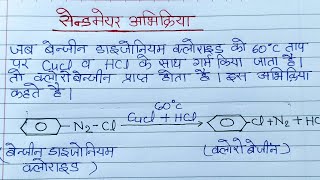 सेन्डमेयर अभिक्रिया
जब बेन्जीन डाइजोनियम क्लोराइड को 60°C ताप
पर CuCl व HCl के साथ गर्म किया जाता है।
तो क्लोरोबेन्जीन प्राप्त होता है। इस अभिक्रिया
कहते है।
60°C
N2-Cl CuCl + HCl Cl + N2 + HCl
बेन्जीन डाइजोनियम (क्लोरोबेंजीन)
क्लोराइड)